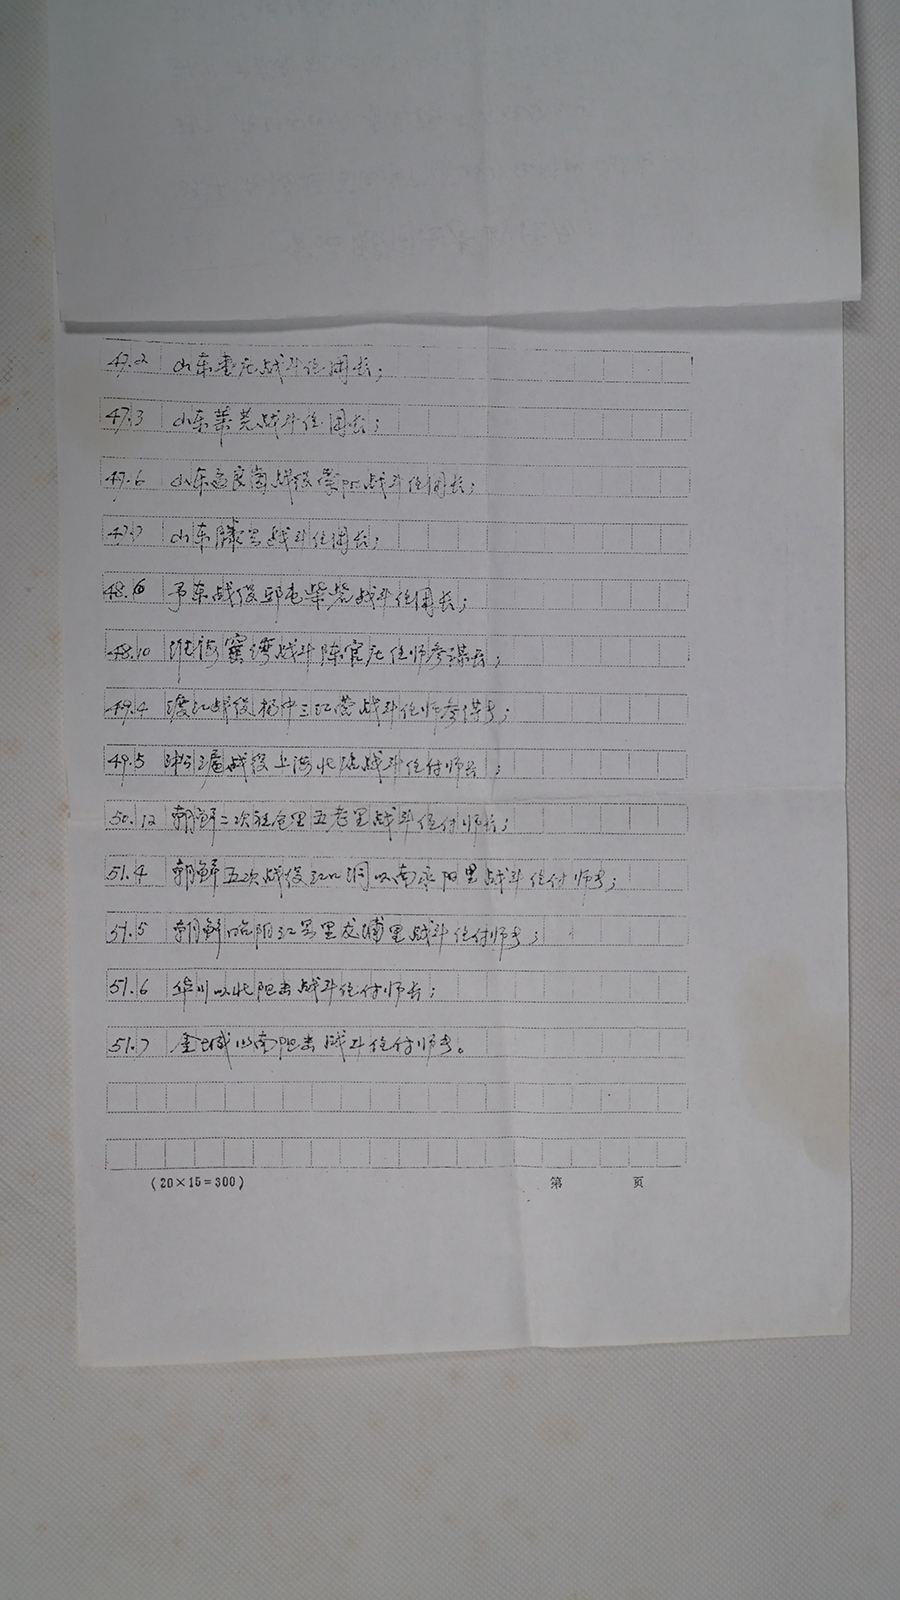 47.2 山东枣庄战斗任团长;
47.3 山东莱芜战斗任团长;
47.6 山东孟良崮战役蒙阴战斗任团长;
47.7 山东滕县战斗任团长;
48.6 予东战役邱屯柴砦战斗任团长;
48.10 淮海窑湾战斗陈官庄任师参谋长;
49.4 渡江战役扬中三江营战斗任师参谋长;
49.5 淞沪战役上海北站战斗任付师长;
50.12 朝鲜二次 里五老里战斗任付师长;
51.4 朝鲜五次战役 洞以南永阳里战斗任付师长;
51.5 朝鲜昭阳江 里龙浦里战斗任付师长;
51.6 华川以北阻击战斗任付师长;
51.7 金城以南阻击战斗任付师长。
(20×15=300) 第 页